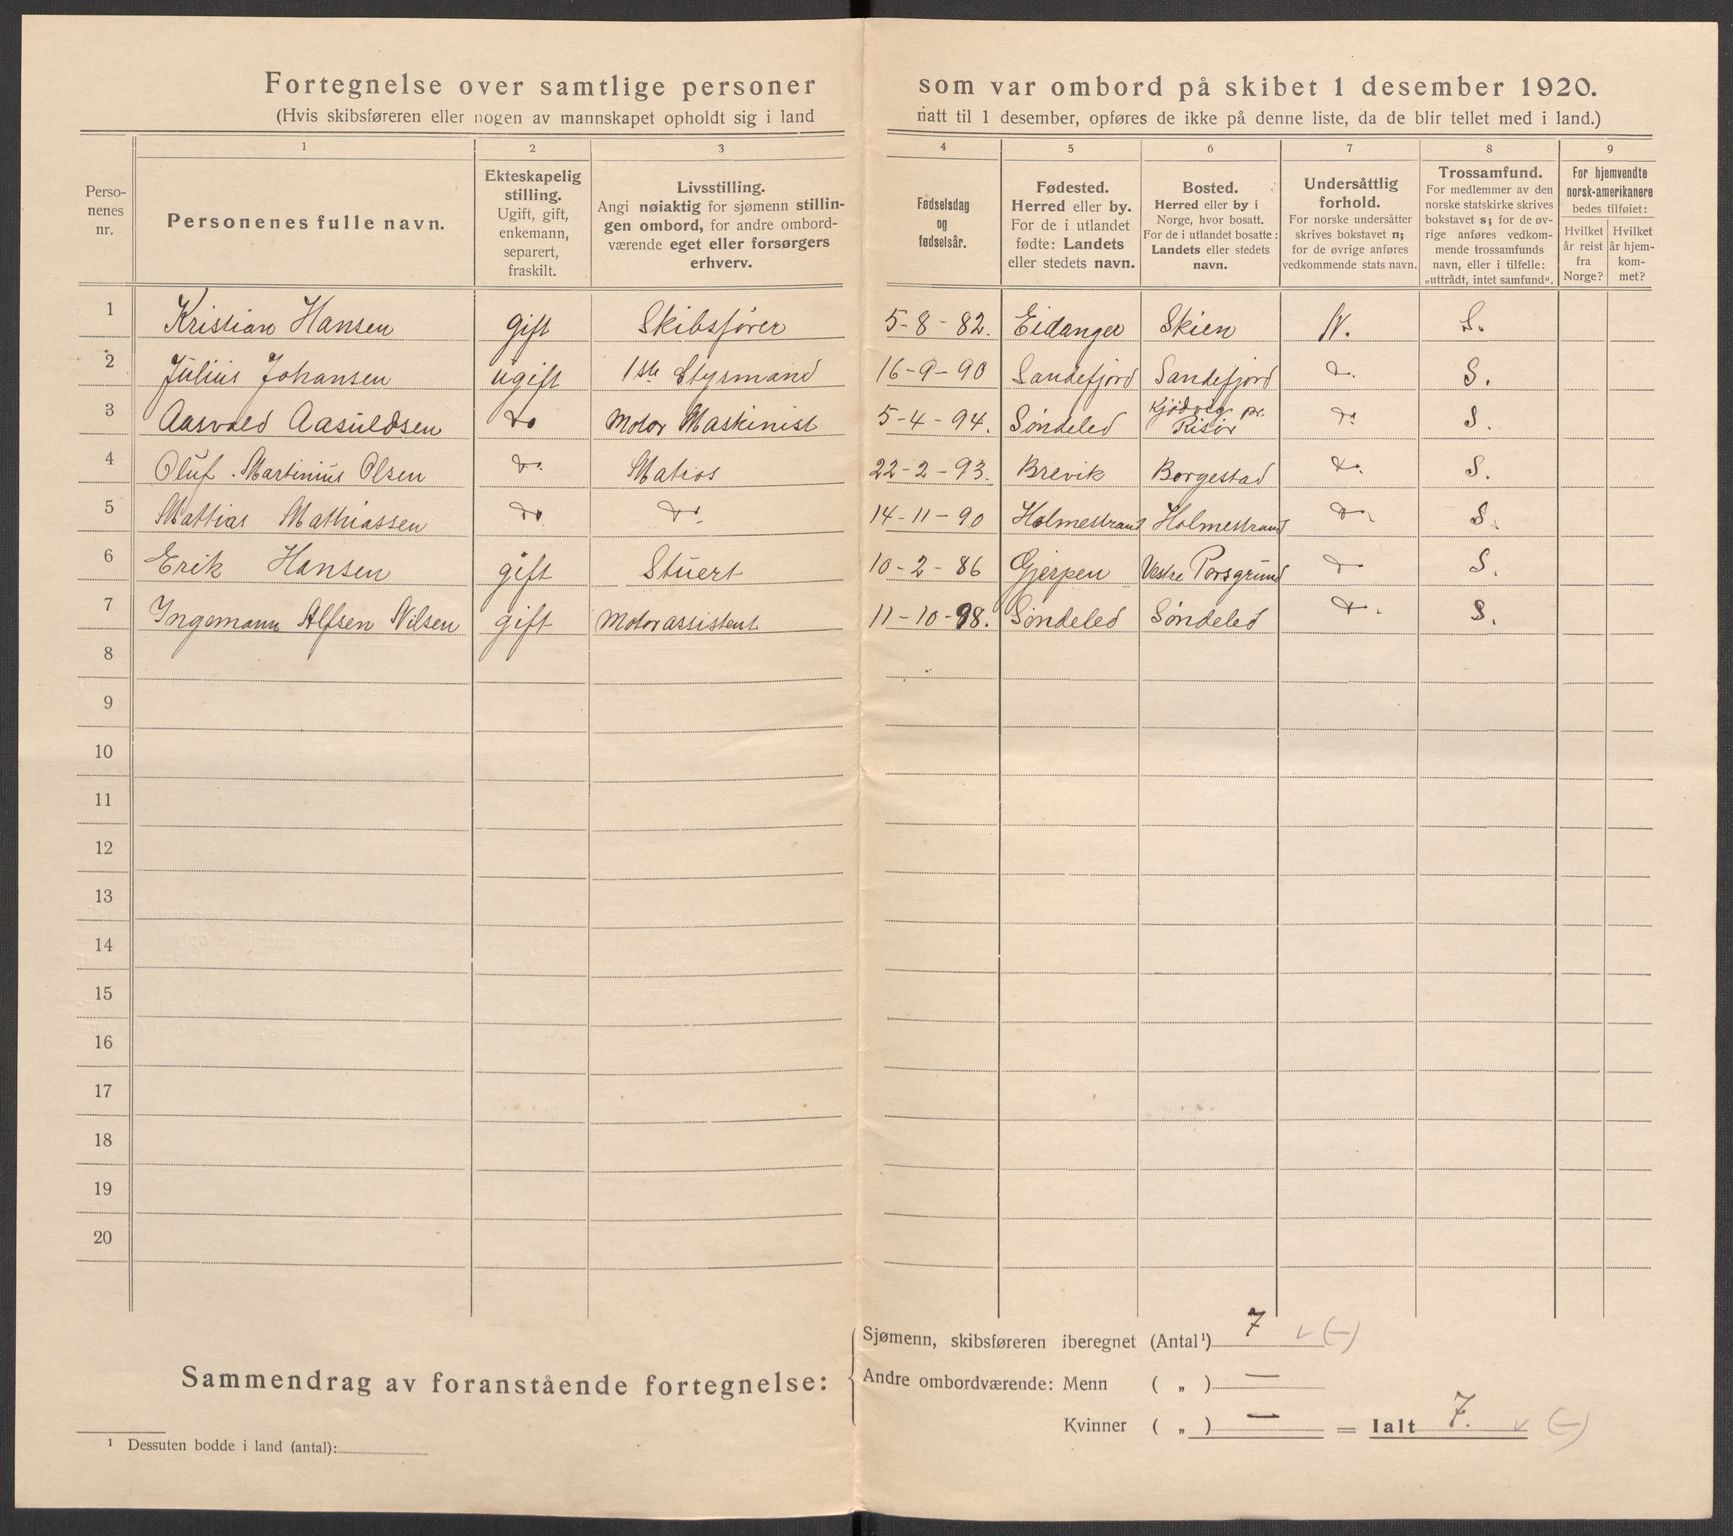 Fortegnelse over samtlige personer som var ombord på skibet 1 desember 1920.
(Hvis skibsføreren eller nogen av mannskapet opholdt sig i land natt til 1 desember, opføres de ikke på denne liste, da de blir tellet med i land.)
1 2 3 4 5 6 7 8 9
Perso-
nenes
nr.
Personenes fulle navn.
Ekteskapelig
stilling.
Ugift, gift,
enkemann,
separert,
fraskilt.
Livsstilling.
Angi nøiaktig for sjømenn stillin-
gen ombord, for andre ombord-
værende eget eller forsørgers
erhverv.
Fødselsdag
og
fødselsår.
Fødested.
Herred eller by.
For de i utlandet
fødte: Landets
eller stedets navn.
Bosted.
Herred eller by i
Norge, hvor bosatt.
For de i utlandet bosatte:
Landets eller stedets
navn.
Undersåttlig
forhold.
For norske undersåtter
skrives bokstavet n;
for de øvrige anføres
vedkommende stats navn.
Trossamfund.
For medlemmer av den
norske statskirke skrives
bokstavet s; for de øv-
rige anføres vedkom-
mende trossamfunds
navn, eller i tilfelle:
„uttrådt, intet samfund“.
For hjemvendte
norsk-amerikanere
bedes tilføiet:
Hvilket
år reist
fra
Norge?
Hvilket
år hjem-
kom-
met?
1 Kristian Hansen gift Skibsfører 5-8-82. Eidanger Skien N. S.
2 Julius Johansen ugift 1ste Styrmand 16-9-90 Sandefjord Sandefjord do. S.
3 Aasvald Aasuldsen do Motor Maskinist 5-4-94. Søndeled Kjødvig pr. Risør do S.
4 Oluf Martinius Olsen do. Matros 22-2-93. Brevik Borgestad do. S.
5 Mattias Mathiassen do do. 14-11-90 Holmestrand Holmestrand do. S.
6 Erik Hansen gift Stuert 10-2-86 Gjerpen Vestre Porsgrund do S.
7 Ingemann Alfsen Nilsen gift Motorassistent 11-10-98. Søndeled Søndeled do. S.
8
9
10
11
12
13
14
15
16
17
18
19
20
Sammendrag av foranstående fortegnelse:
Sjømenn, skibsføreren iberegnet (Antal¹) 7 v (-)
Andre ombordværende: Menn ( „ ) —
Kvinner ( „ ) — = Ialt 7. v (-)
¹ Dessuten bodde i land (antal):